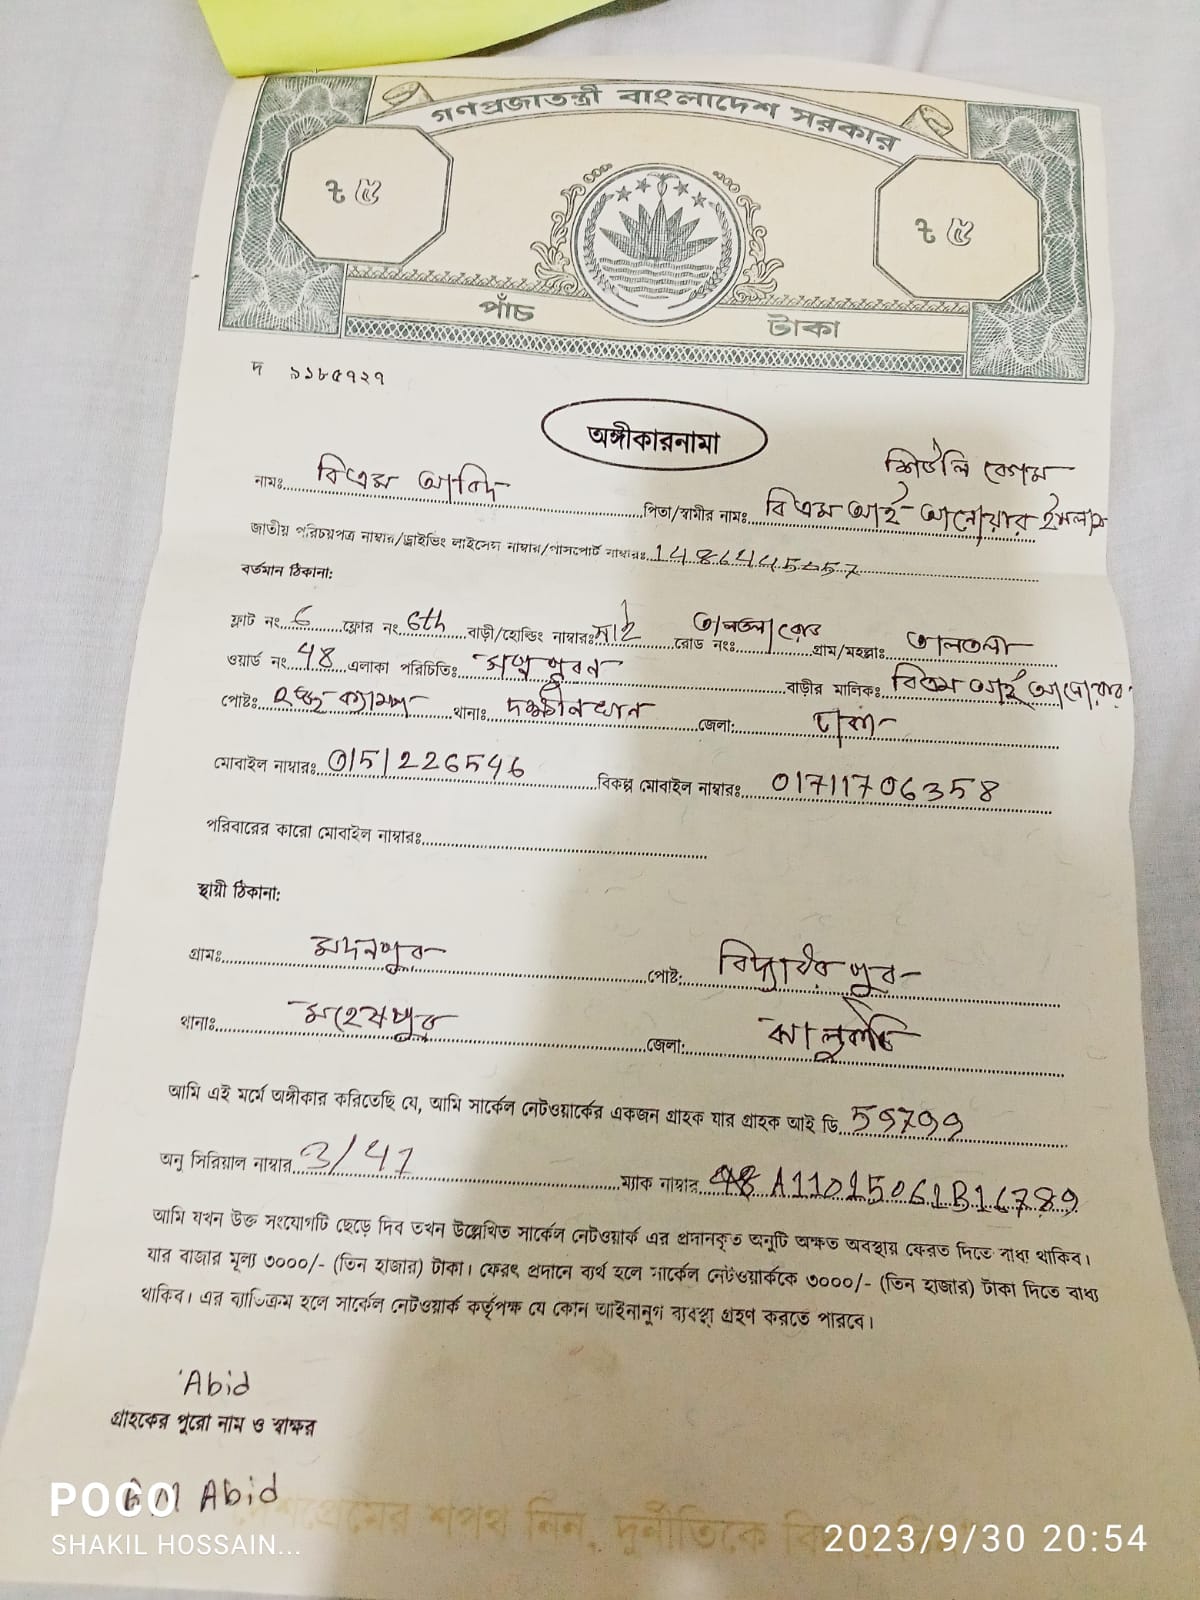 গণপ্রজাতন্ত্রী বাংলাদেশ সরকার
৳ ৫
৳ ৫
পাঁচ টাকা
দ ৯১৮৫৭২৭
অঙ্গীকারনামা
শিউলি বেগম
নামঃ বিএম আবিদ পিতা/স্বামীর নামঃ বি এম আই আনোয়ার ইসলাম
জাতীয় পরিচয়পত্র নাম্বার/ড্রাইভিং লাইসেন্স নাম্বার/পাসপোর্ট নাম্বারঃ
বর্তমান ঠিকানা:
ফ্লাট নং 6 ফ্লোর নং 6th বাড়ী/হোল্ডিং নাম্বারঃ নাই রোড নংঃ গ্রাম/মহল্লাঃ তালতলা
ওয়ার্ড নং 48 এলাকা পরিচিতিঃ বাড়ীর মালিকঃ বিএম আই আনোয়ার
পোষ্টঃ হজ্জ ক্যাম্প থানাঃ দক্ষীনখান জেলা: ঢাকা
মোবাইল নাম্বারঃ 0151226546 বিকল্প মোবাইল নাম্বারঃ 01711706358
পরিবারের কারো মোবাইল নাম্বারঃ
স্থায়ী ঠিকানা:
গ্রামঃ মদনপুর পোষ্ট: বিদ্যাধরপুর
থানাঃ মহেষপুর জেলা:
আমি এই মর্মে অঙ্গীকার করিতেছি যে, আমি সার্কেল নেটওয়ার্কের একজন গ্রাহক যার গ্রাহক আই ডি 59799
অনু সিরিয়াল নাম্বার 3/41 ম্যাক নাম্বার 48 A11015061B16789
আমি যখন উক্ত সংযোগটি ছেড়ে দিব তখন উল্লেখিত সার্কেল নেটওয়ার্ক এর প্রদানকৃত অনুটি অক্ষত অবস্থায় ফেরত দিতে বাধ্য থাকিব।
যার বাজার মূল্য ৩০০০/- (তিন হাজার) টাকা। ফেরৎ প্রদানে ব্যর্থ হলে সার্কেল নেটওয়ার্ককে ৩০০০/- (তিন হাজার) টাকা দিতে বাধ্য
থাকিব। এর ব্যাতিক্রম হলে সার্কেল নেটওয়ার্ক কর্তৃপক্ষ যে কোন আইনানুগ ব্যবস্থা গ্রহণ করতে পারবে।
Abid
গ্রাহকের পুরো নাম ও স্বাক্ষর
BM Abid
দেশপ্রেমের শপথ নিন, দুর্নীতিকে
POCO
SHAKIL HOSSAIN...
2023/9/30 20:54